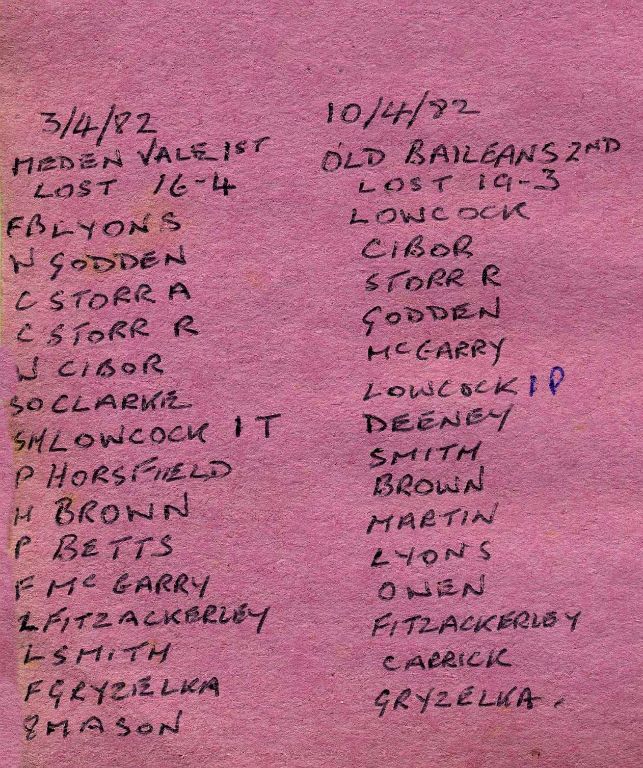 3/4/82
MEDEN VALE 1ST
LOST 16-4
FB LYONS
W GODDEN
C STORR A
C STORR R
W CIBOR
SO CLARKE
SH LOWCOCK 1 T
P HORSFIELD
H BROWN
P BETTS
F MCGARRY
L FITZACKERLEY
L SMITH
F GRYZELKA
8 MASON
10/4/82
OLD BAILEANS 2ND
LOST 19-3
LOWCOCK
CIBOR
STORR R
GODDEN
MCGARRY
LOWCOCK 1 P
DEENEY
SMITH
BROWN
MARTIN
LYONS
OWEN
FITZACKERLEY
CARRICK
GRYZELKA.